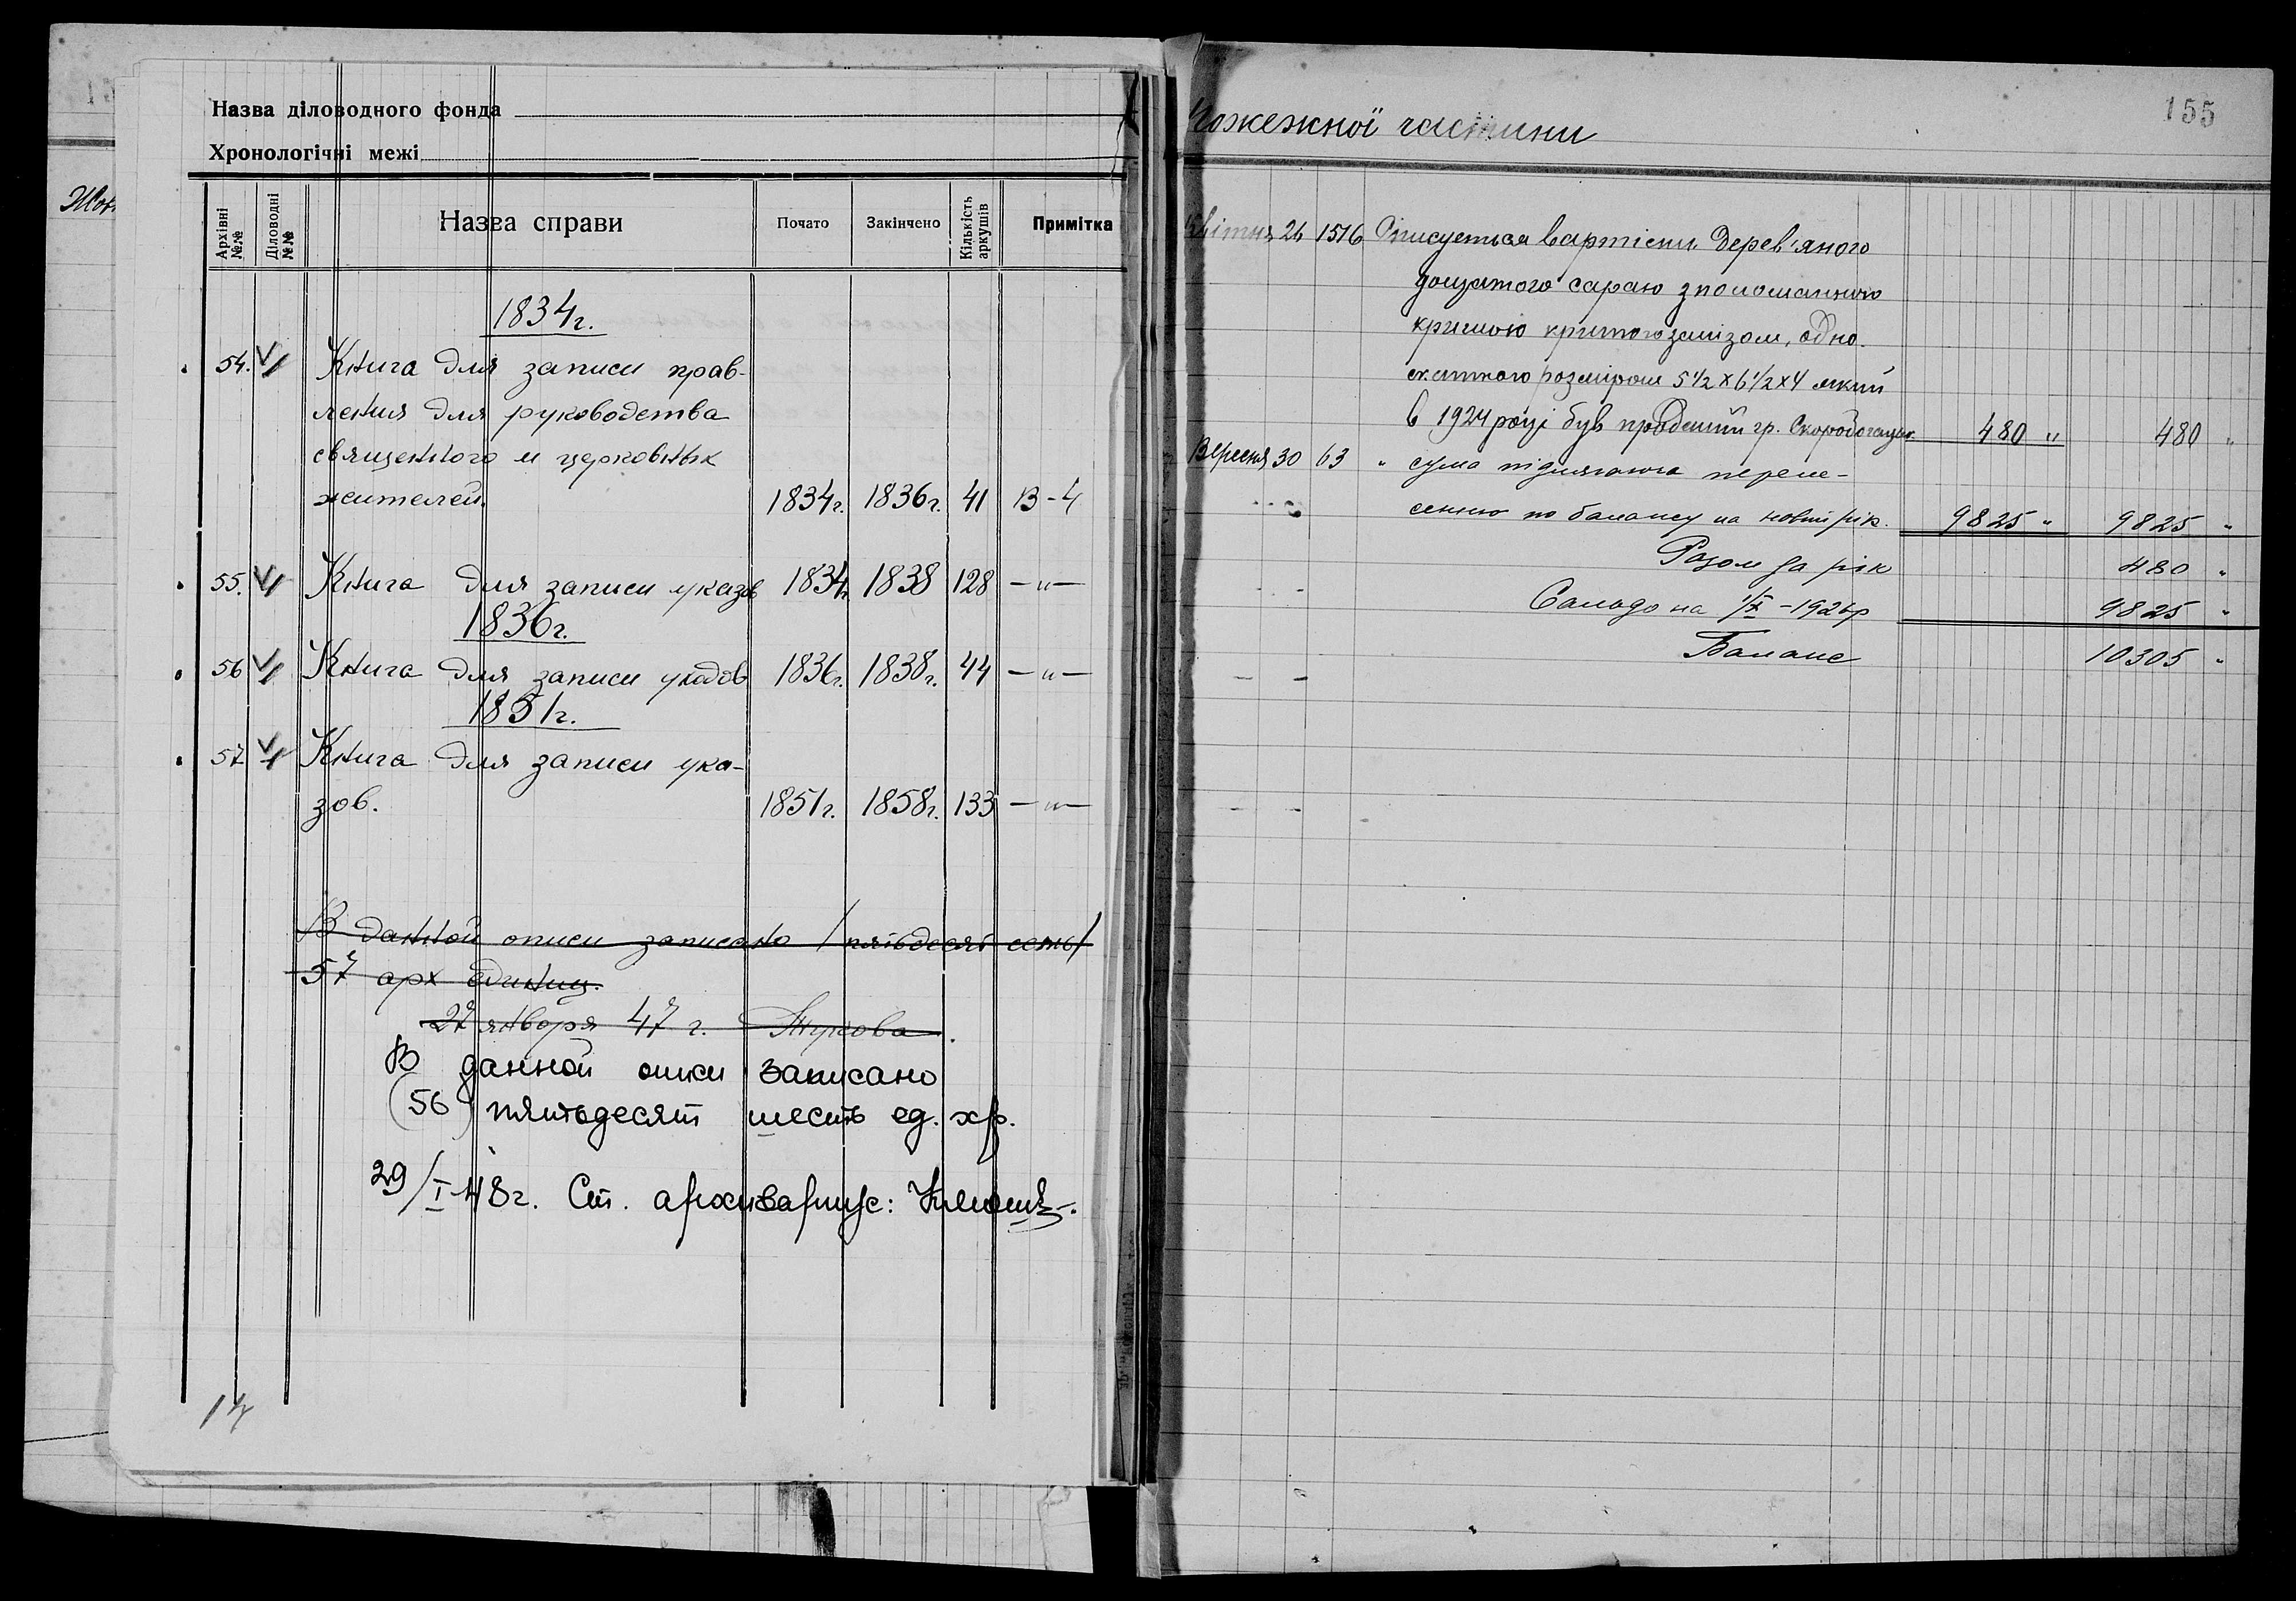 Назва діловодного фонда
Хронологічні межі
Архівні №№
Діловодні №№
Назва справи
Почато
Закінчено
Кількість аркушів
Примітка
1834г.
54. Книга для записи прав-
ления для руководства
священного и церковных
жителей. 1834г. 1836г. 41 В-4
55. Книга для записи указов 1834г. 1838 128 —"—
1836г.
56 Книга для записи указов 1836г. 1838г. 44 —"—
1851г.
57 Книга для записи ука-
зов. 1851г. 1858г. 133 —"—
В данной описи записано /пятьдесят семь/
57 арх единиц.
27 января 47 г.
В данной описи записано
(56) пятьдесят шесть ед. хр.
29/I-48г. Ст. архивариус:
14
155
Пожежної частини
Квітня 26 1516 Списується вартість дерев'яного
дощатого сараю з поломанною
кришою критого залізом, одно-
скатного розміром 5 1/2 x 6 1/2 x 4 який
в 1924 році був проданий гр. 480 " 480 "
Вересня 30 63 " сума підлягаюча перене-
сенню по балансу на новий рік. 9825 " 9825 "
Разом за рік 480 "
Сальдо на 1/X - 1926р 9825 "
Баланс 10305 "